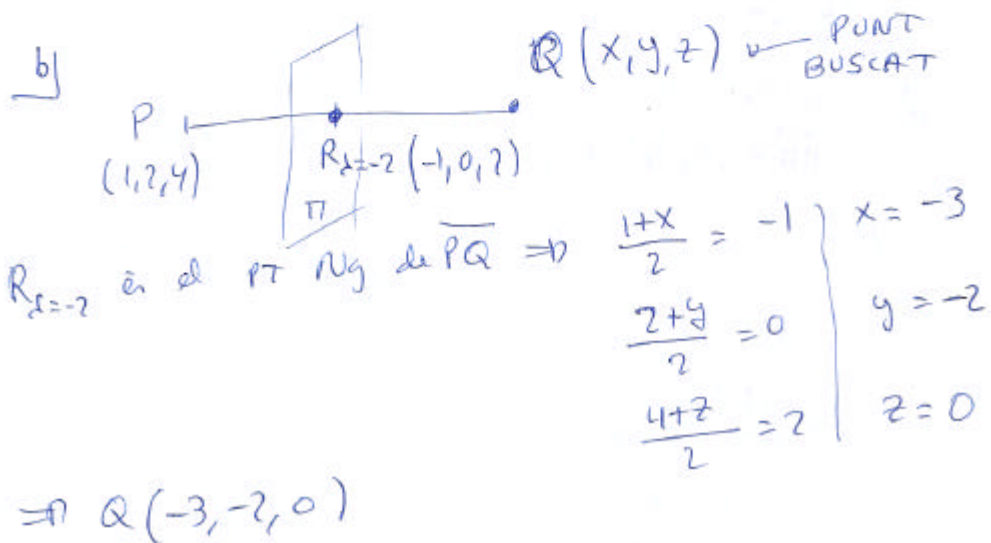 b)
Q (x, y, z) ← PUNT BUSCAT
P
(1,2,4)
R_{λ=-2} (-1,0,2)
π
R_{λ=-2} és el PT Mg de \overline{PQ} ⇒
\frac{1+x}{2} = -1 | x = -3
\frac{2+y}{2} = 0 | y = -2
\frac{4+z}{2} = 2 | z = 0
⇒ Q (-3, -2, 0)